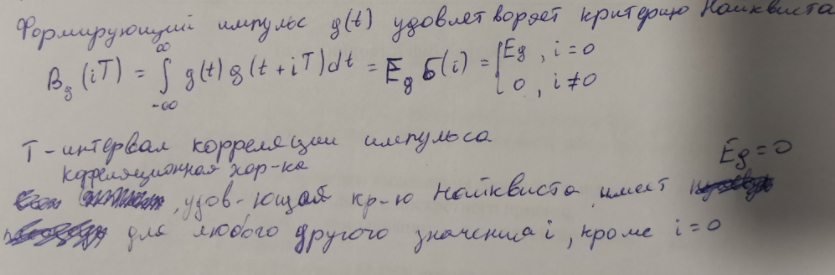 Формирующий импульс g(t) удовлетворяет критерию Найквиста
B_g(iT) = ∫_{-∞}^{∞} g(t) g(t+iT)dt = E_g б(i) = { E_g, i=0
0, i≠0
T - интервал корреляции импульса
Корреляционная хар-ка E_g=0
удов-ющая кр-ю Найквиста имеет
для любого другого значения i, кроме i=0